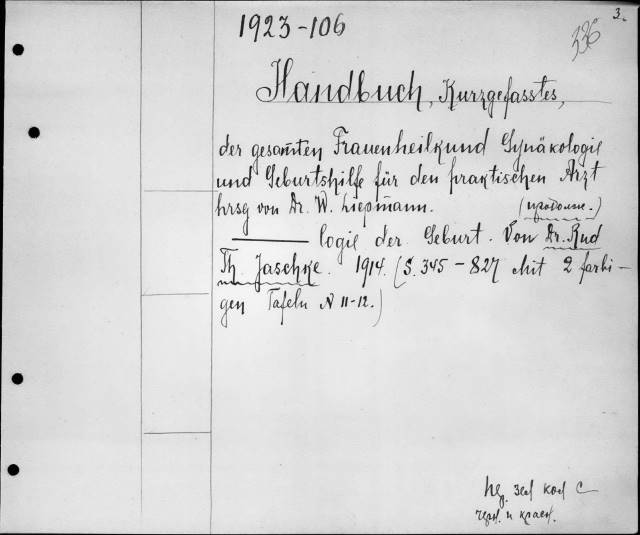 3.
1923-106
336
Handbuch, Kurzgefasstes,
der gesamten Frauenheilkund Gynäkologie
und Geburtshilfe für den praktischen Arzt
hrsg von Dr. W. Liepmann. (продолж.)
logie der Geburt. Von Dr. Rud
Th. Jaschke. 1914. (S. 345-827 Mit 2 farbi-
gen Tafeln N 11-12.)
зел кол С
черн. и красн.